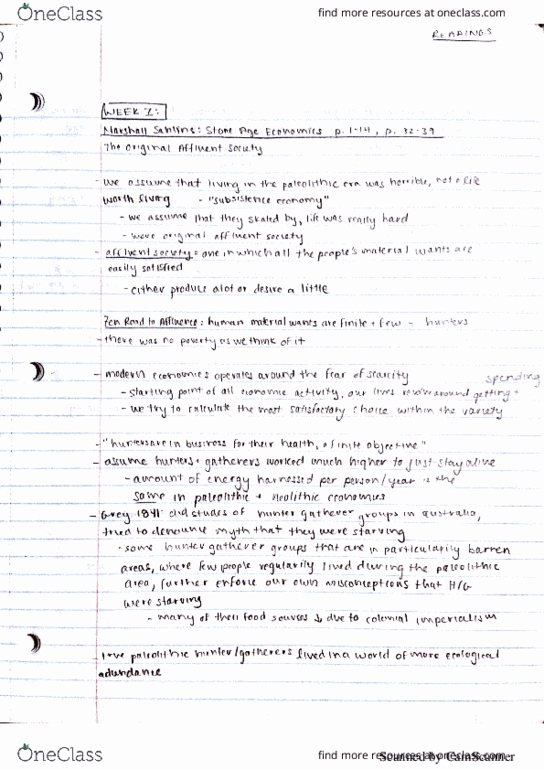 OneClass
find more resources at oneclass.com
READINGS
WEEK 1:
Marshall Sahlins: Stone Age Economics p. 1-14, p. 32-39
The Original Affluent Society
- we assume that living in the paleolithic era was horrible, not a life
worth living - "subsistence economy"
- we assume that they skated by, life was really hard
- were original affluent society
- affluent society = one in which all the people's material wants are
easily satisfied
- either produce alot or desire a little
Zen Road to Affluence: human material wants are finite + few - hunters
- there was no poverty as we think of it
- modern economies operates around the fear of scarcity
spending
- starting point of all economic activity, our lives revolve around getting +
- we try to calculate the most satisfactory choice within the variety
- "hunters are in business for their health, a finite objective"
- assume hunters + gatherers worked much higher to just stay alive
- amount of energy harnessed per person/year is the
same in paleolithic + neolithic economies
- Grey 1841 did studies of hunter gather groups in australia,
tried to denounce myth that they were starving
- some hunter gather groups that are in particularily barren
areas, where few people regularily lived during the paleolithic
area, further enforce our own misconceptions that H/G
were starving
- many of their food sources ↓ due to colonial imperialism
- true paleolithic hunter/gatherers lived in a world of more ecological
abundance
OneClass
find more resources at oneclass.com
Scanned by CamScanner